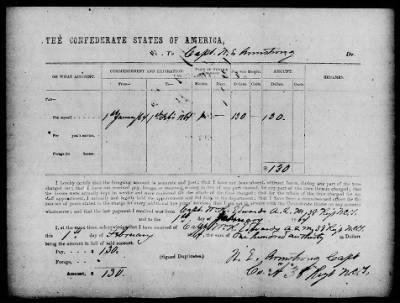 THE CONFEDERATE STATES OF AMERICA,
To Capt. N. E. Armstrong Dr.
ON WHAT ACCOUNT. COMMENCEMENT AND EXPIRATION. TERM OF SERVICE CHARGED. PAY PER MONTH. AMOUNT. REMARKS.
Months. Days. Dollars. Cents. Dollars. Cents.
PAY—
For myself 1st Jany 64 1st Feb 1864 1 — 130 130
For years' service,
FORAGE for horses
$130
I hereby certify that the foregoing account is accurate and just; that I have not been absent, without leave, during any part of the time
charged for; that I have not received pay, forage, or received money in lieu of any part thereof, for any part of the time therein charged; that
the horses were actually kept in service and were mustered for the whole of the time charged; that for the whole of the time charged for my
staff appointment, I actually and legally held the appointment and did duty in the department; that I have been a commissioned officer for the
number of years stated in the charge for every additional five years' service; that I am not in arrears with the Confederate States on any account
whatsoever; and that the last payment I received was from Capt. W. H. Edwards A. Q. M. 38 Regt N.C.T.
and to the 1st day of February 1864
I, at the same time, acknowledge that I have received of Capt W. H. Edwards A. Q. M. 38 Regt N.C.T.
this 1st day of February 1864, the sum of One hundred & thirty Dollars
being the amount in full of said account.
Pay - - 130.
Forage, - -
Amount, $ 130. (Signed Duplicates.)
N. E. Armstrong Capt
Co. Regt N.C.T.